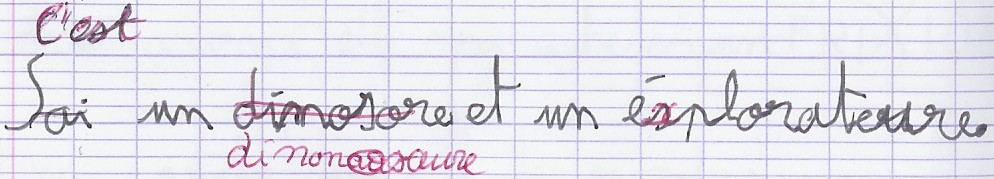 C'est
Sai un dinosore et un éxplorateure.
dinonosaure